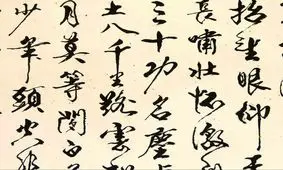 抬望眼仰天
長嘯壯懷激
三十功名塵
土八千里路雲
月莫等閒白
少年頭空